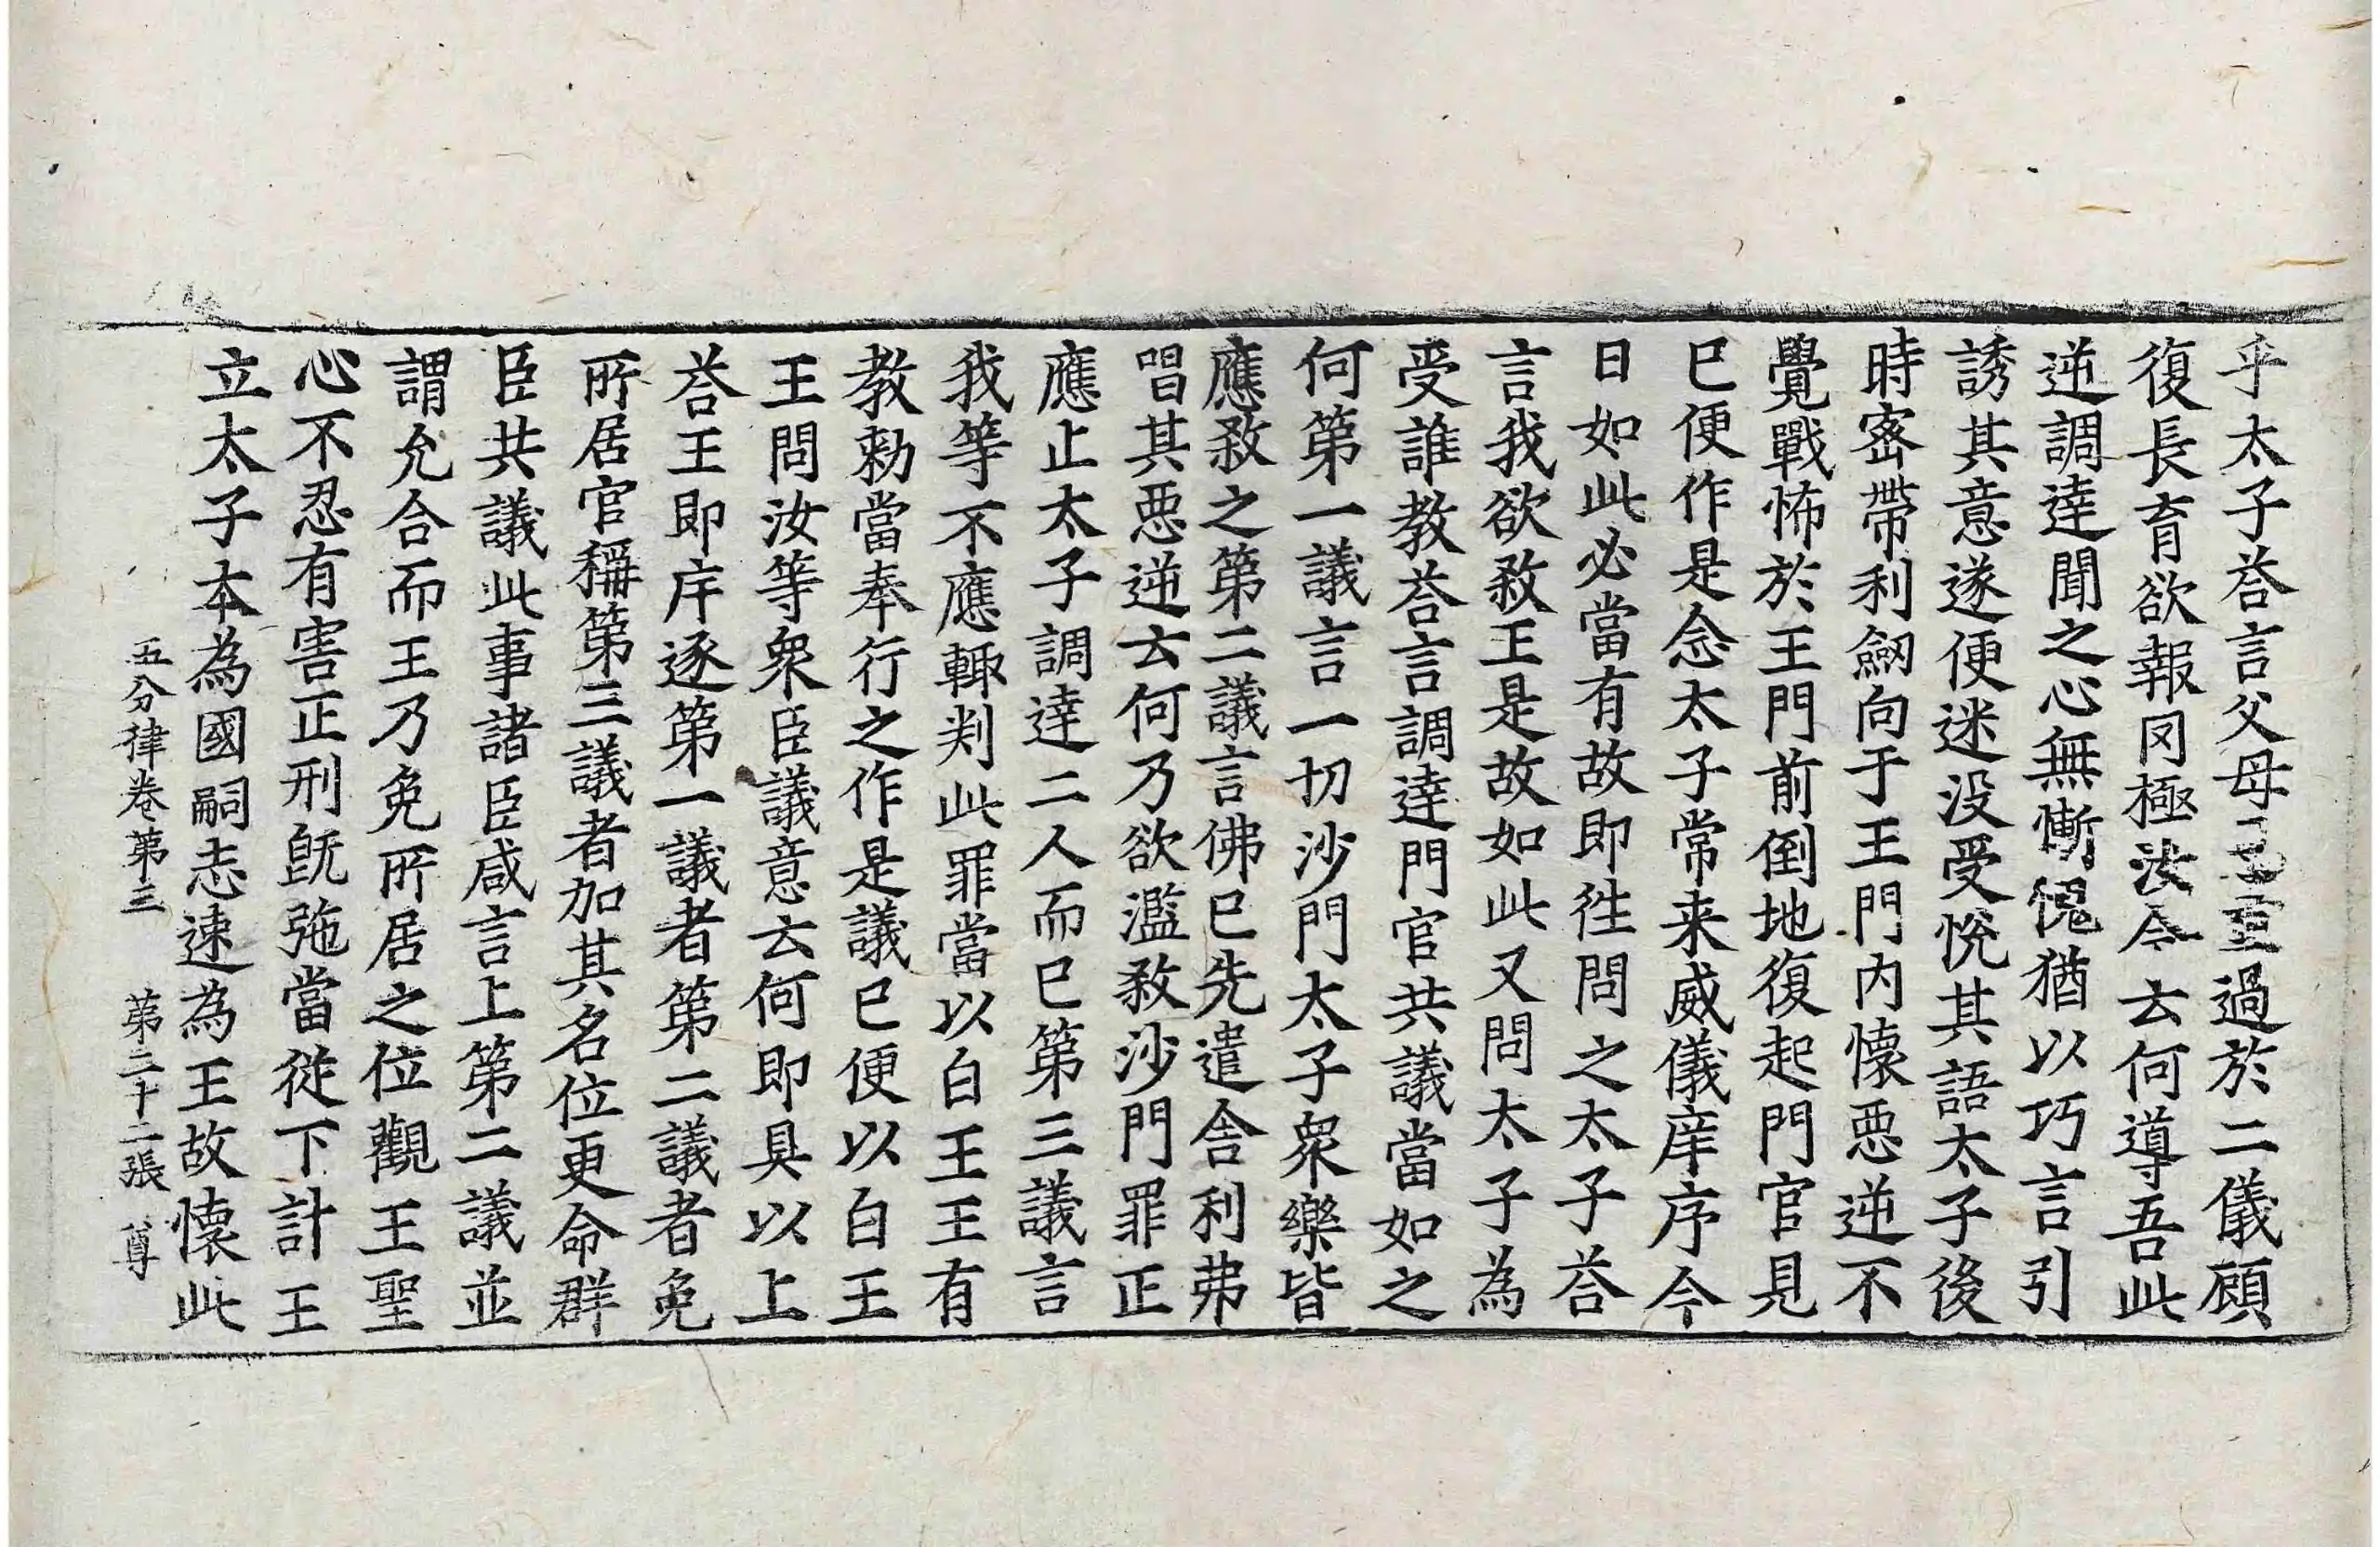 乎太子荅言父母至過於二儀顧
復長育欲報罔極汝今云何導吾此
逆調達聞之心無慚愧猶以巧言引
誘其意遂便迷没受恱其語太子後
時密帶利劒向于王門內懷惡逆不
覺戰怖於王門前倒地復起門官見
已便作是念太子常来威儀庠序今
日如此必當有故即徃問之太子荅
言我欲煞王是故如此又問太子為
受誰教荅言調達門官共議當如之
何第一議言一切沙門太子衆樂皆
應煞之第二議言佛已先遣舍利弗
唱其惡逆云何乃欲濫煞沙門罪正
應止太子調達二人而已第三議言
我等不應輙判此罪當以白王王有
教勑當奉行之作是議已便以白王
王問汝等衆臣議意云何即具以上
荅王即斥逐第一議者第二議者免
所居官稱第三議者加其名位更命群
臣共議此事諸臣咸言上第二議並
謂允合而王乃免所居之位觀王聖
心不忍有害正刑既弛當從下計王
立太子本為國嗣志速為王故懷此
五分律卷第三 第二十二張 尊